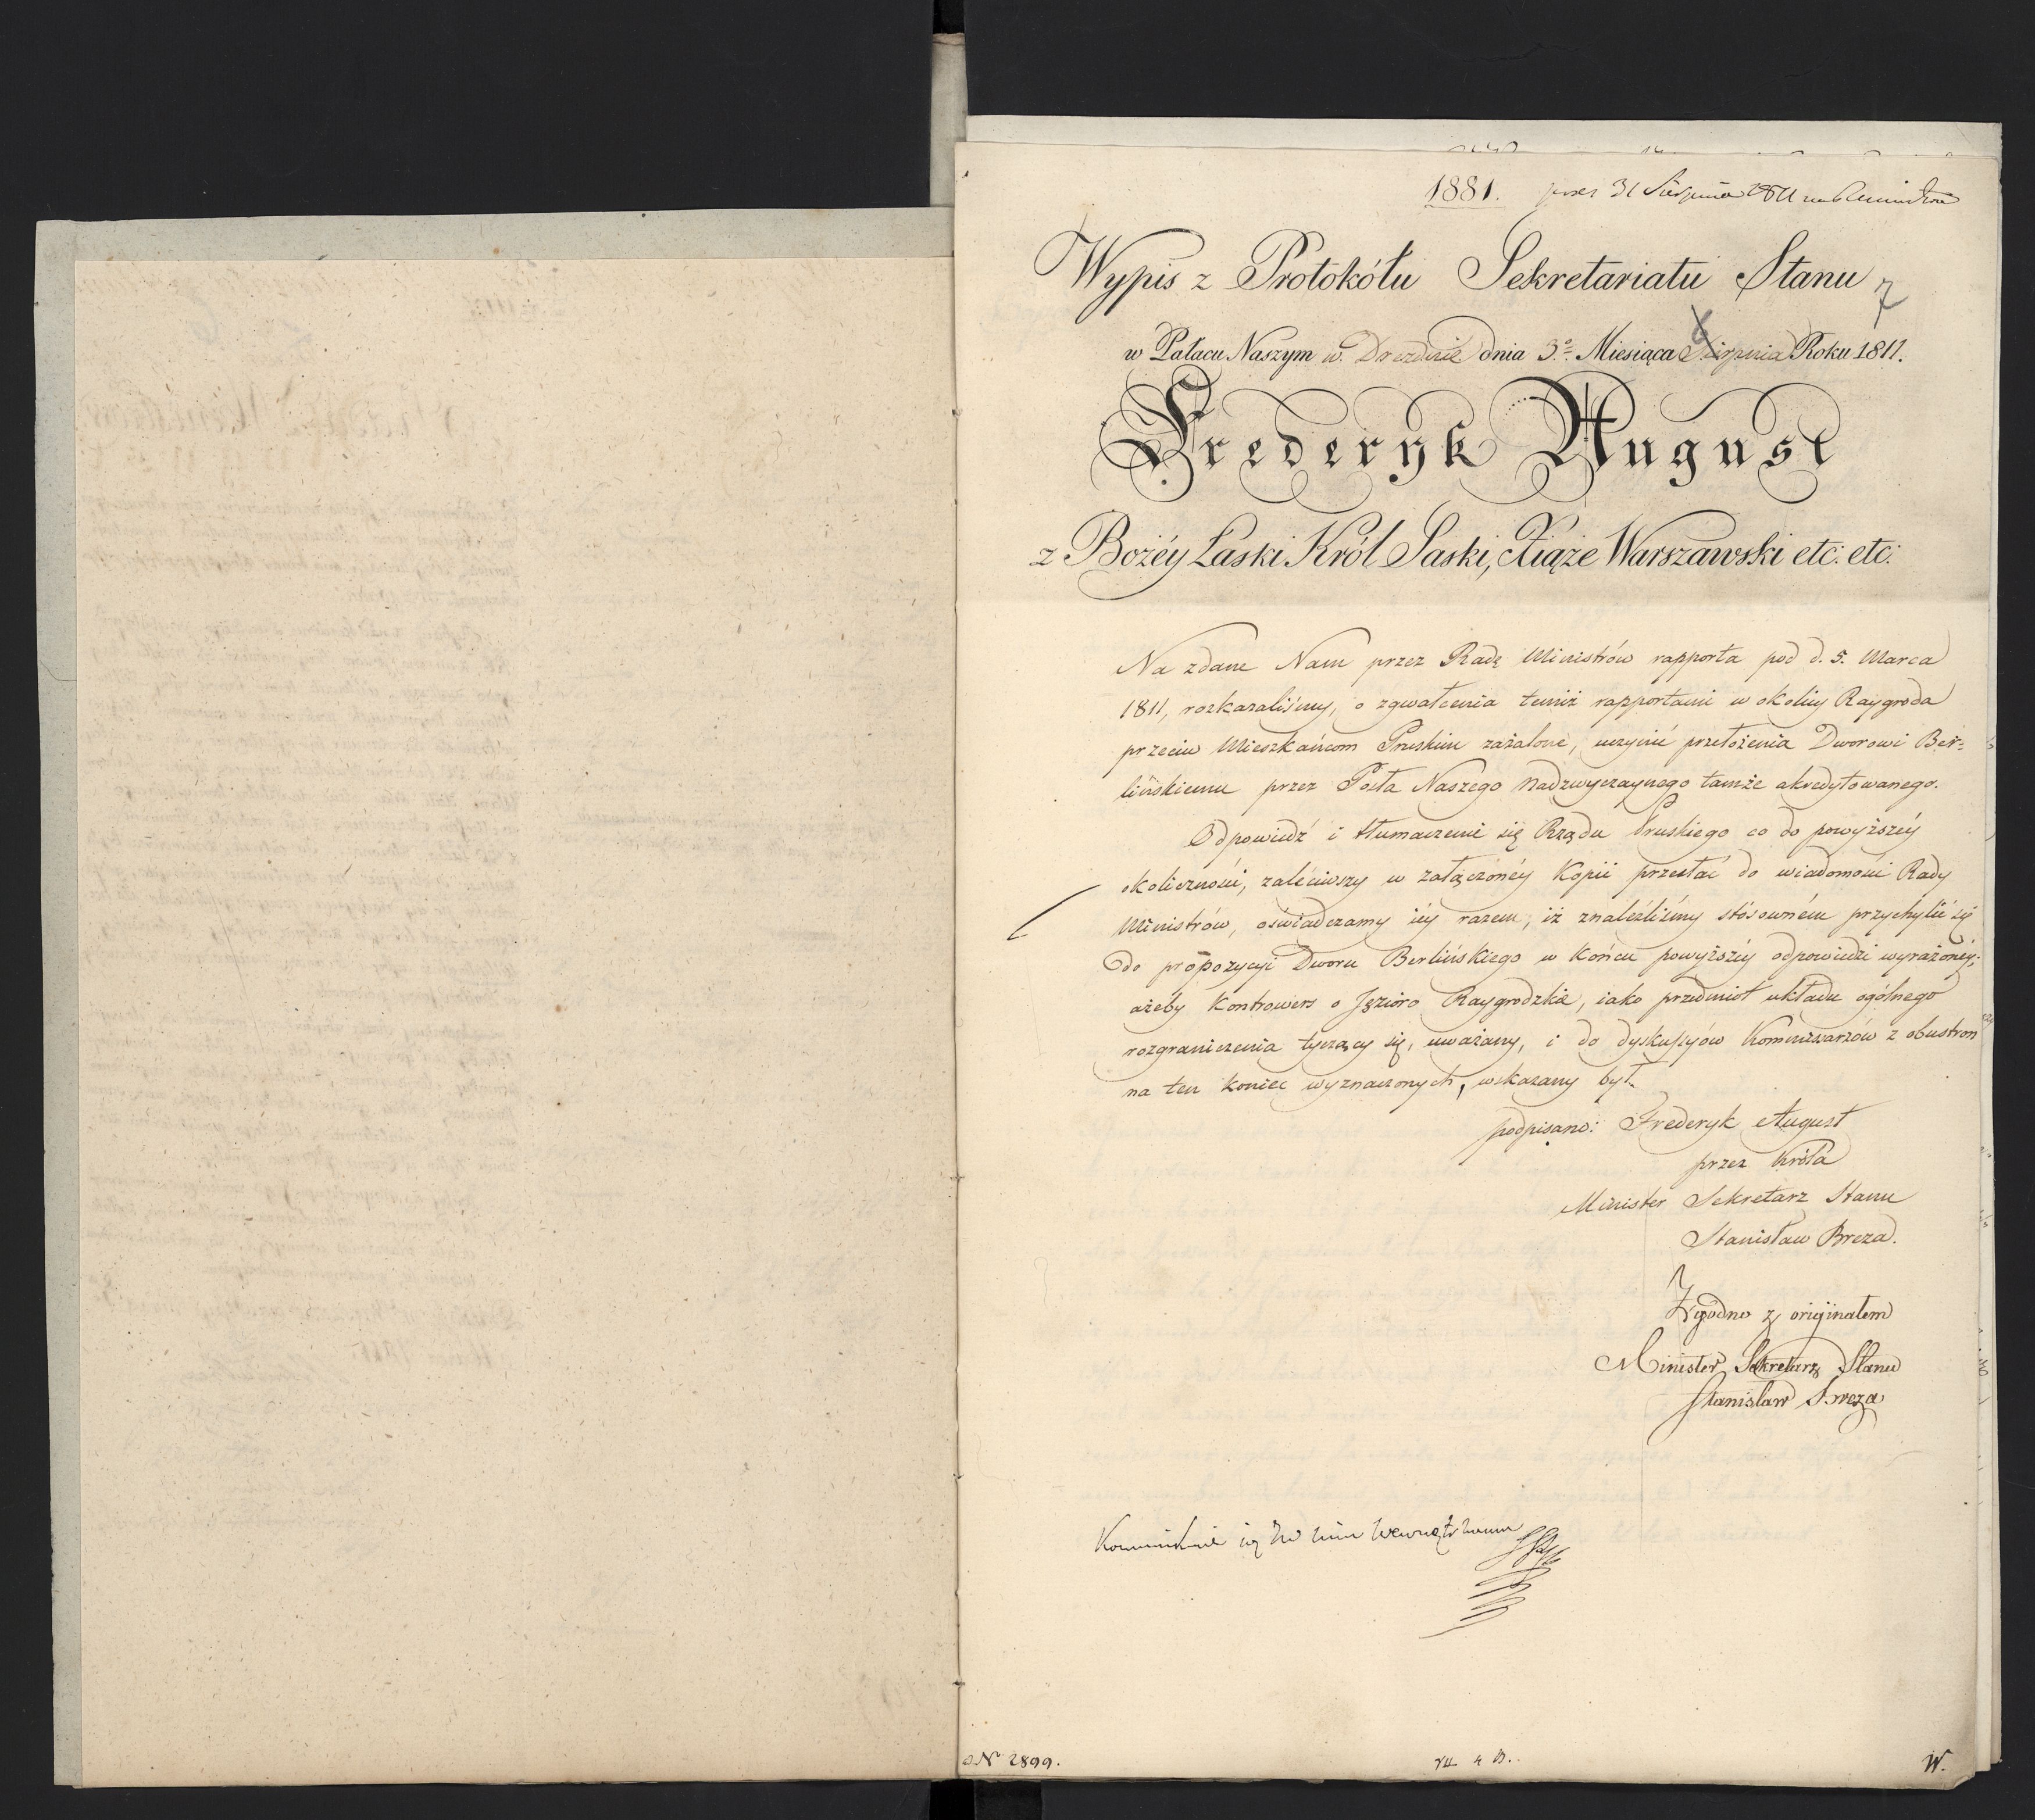 1881. 31 Sierpnia 1811
Wypis z Protokółu Sekretariatu Stanu
7
w Pałacu Naszym w Dreznie dnia 3º Miesiąca Sierpnia Roku 1811.
Frederyk August
z Bożéy Łaski Król Saski, Xiąże Warszawski etc: etc:
Na zdane Nam przez Radę Ministrów rapporta pod d. 5. Marca
1811, rozkazaliśmy, o zgwałcenia temiż rapportami w okolicy Raygroda
przeciw Mieszkańcom Pruskim zażalone, uczynić przełożenia Dworowi Ber=
lińskiemu przez Posła Naszego nadzwyczaynego tamże akredytowanego.
Odpowiedź i tłumaczenie się Rządu Pruskiego co do powyższéy
okoliczności, zaleciwszy w załączonéy Kopii przesłać do wiadomości Rady
Ministrów, oświadczamy iéy razem, iż znaleźliśmy stósowném przychylić się
do propozycyi Dworu Berlińskiego w końcu powyższéy odpowiedzi wyrażonéy;
ażeby Kontrowers o Jezioro Raygrodzkie, iako przedmiot układu ogólnego
rozgraniczenia tyczący się, uważany, i do dyskussyów Kommissarzów z obustron
na ten koniec wyznaczonych, wskazany był.
podpisano: Frederyk August
przez Króla
Minister Sekretarz Stanu
Stanisław Breza.
Zgodno z originałem
Minister Sekretarz Stanu
Stanisław Breza
No 2899.
W.